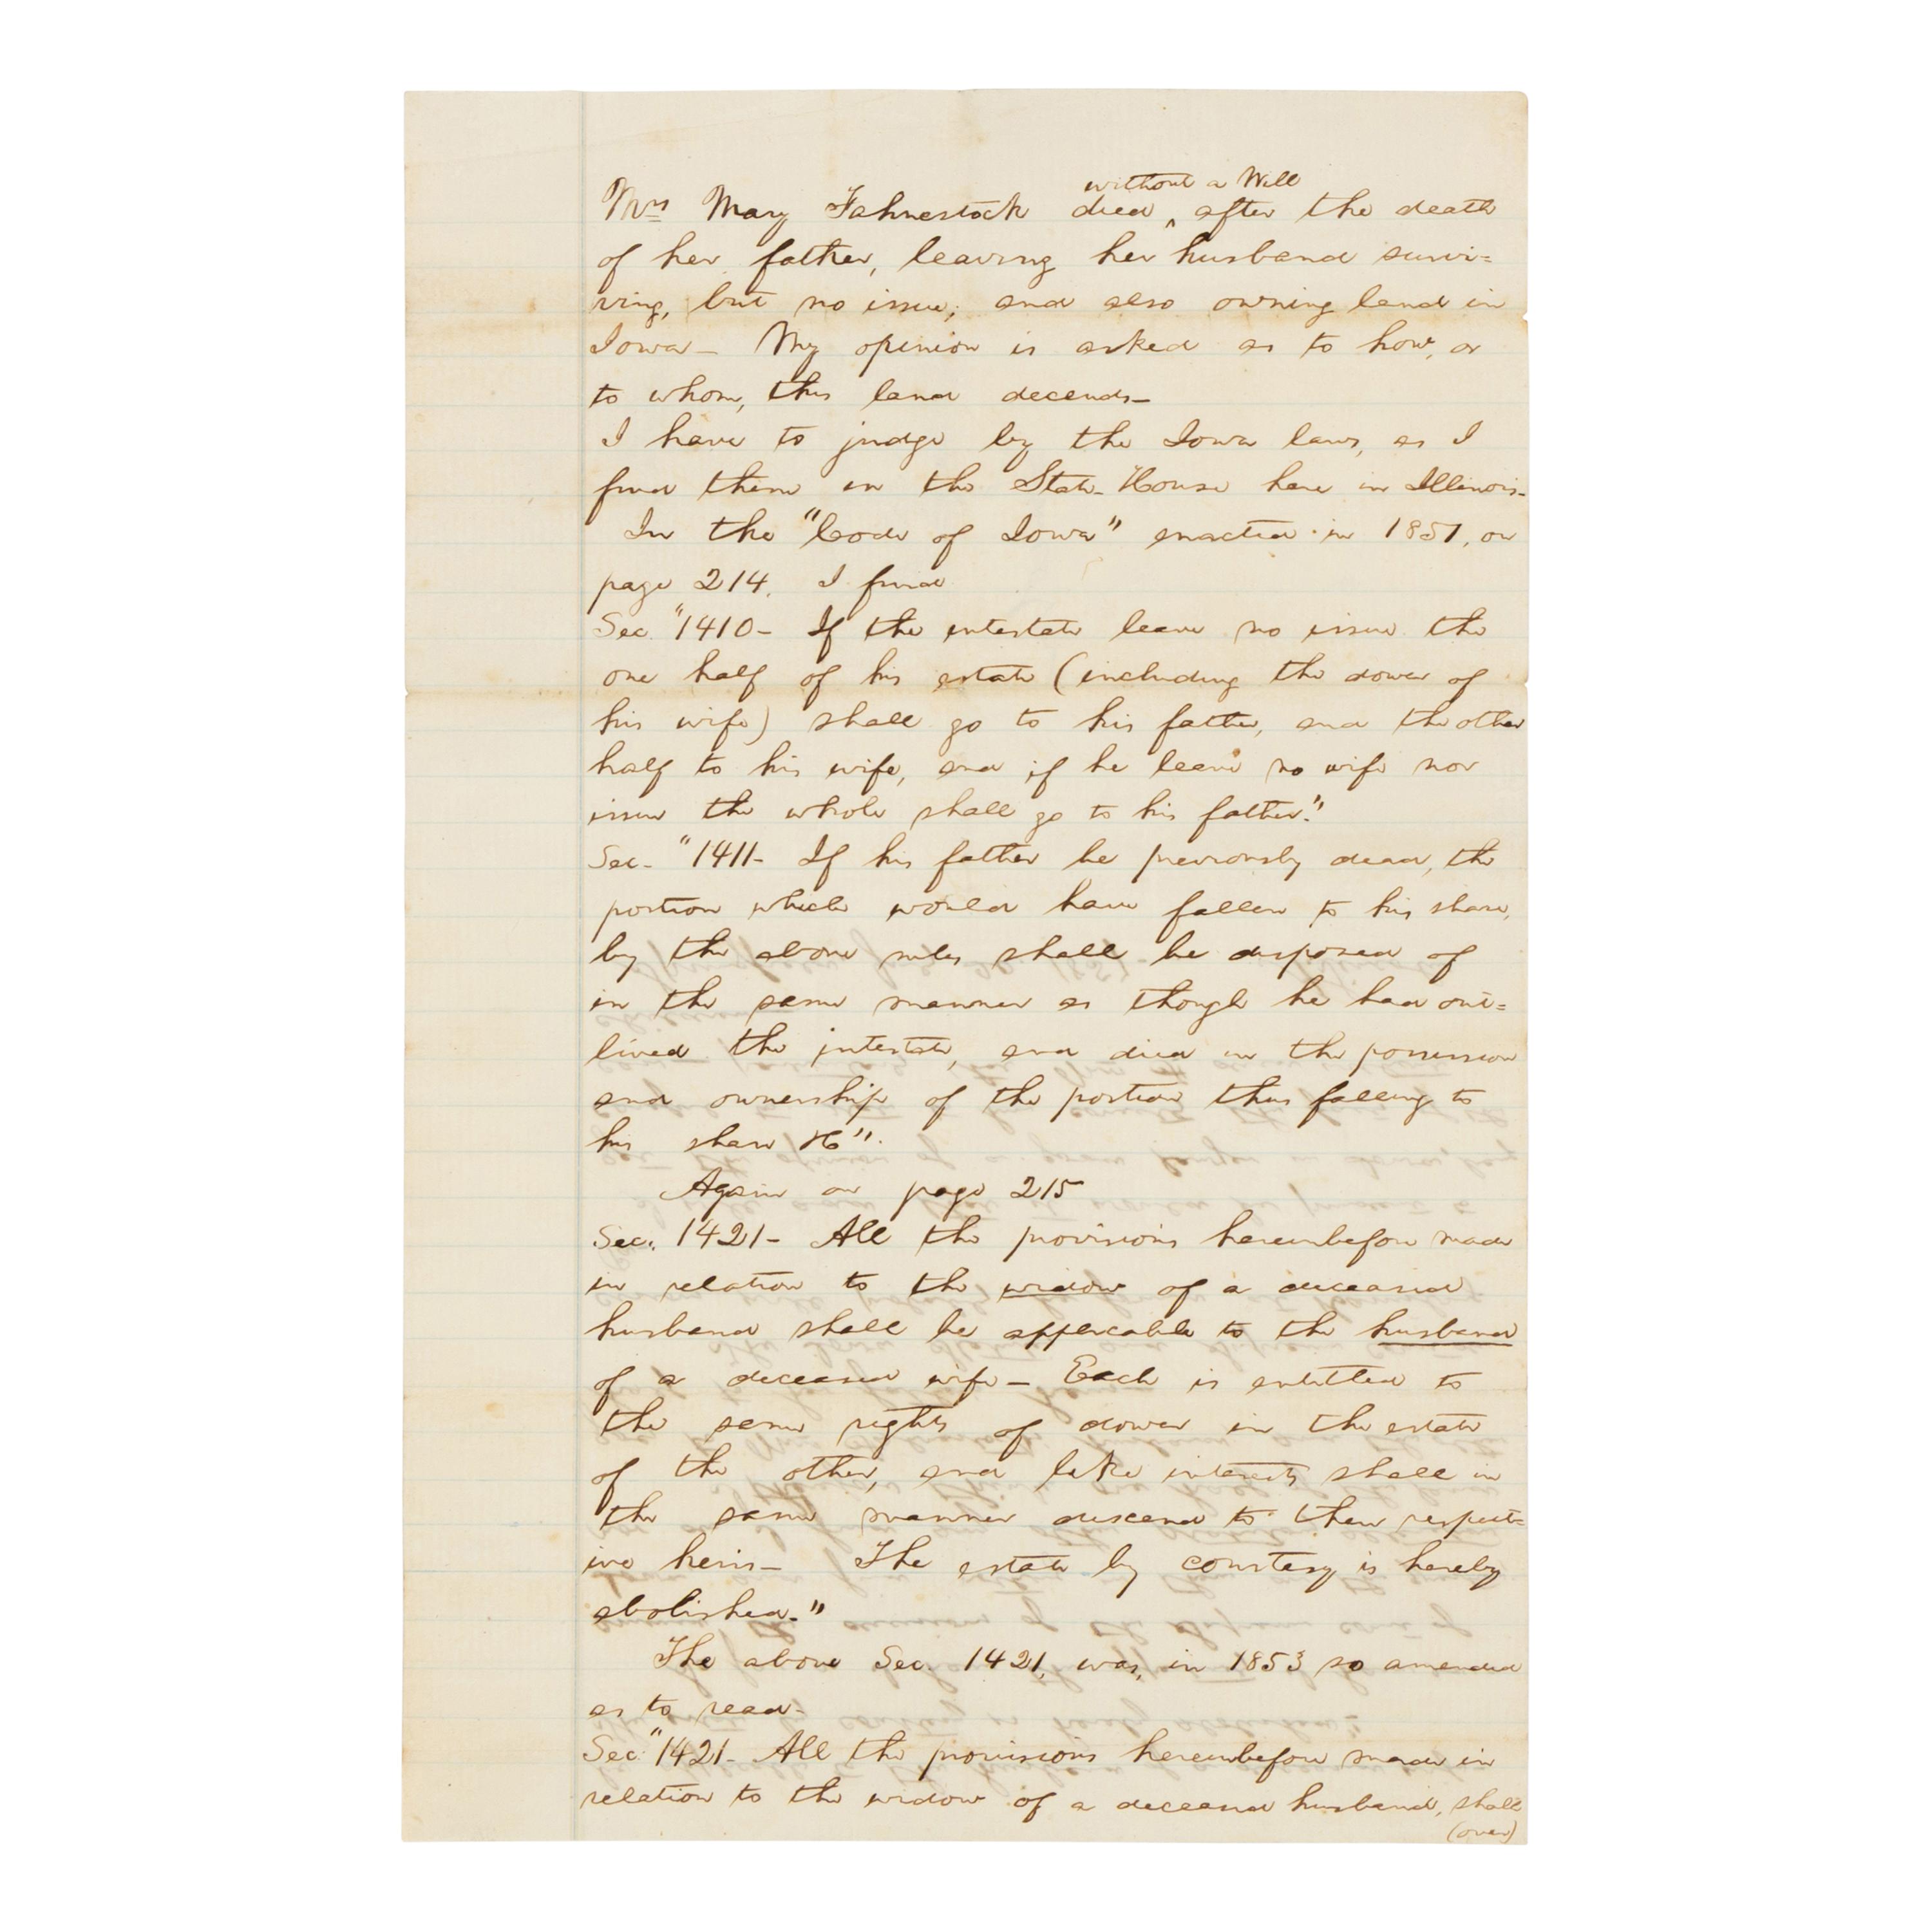 Mrs Mary Fahnestock died ^ without a Will after the death
of her father, leaving her husband survi=
ving, but no issue; and also owning land in
Iowa— My opinion is asked as to how, or
to whom, this land decends—
I have to judge by the Iowa laws, as I
find them in the State-House here in Illinois—
In the "Code of Iowa" enacted in 1851, on
page 214, I find
Sec. "1410— If the intestate leave no issue the
one half of his estate (including the dower of
his wife) shall go to his father, and the other
half to his wife, and if he leave no wife nor
issue the whole shall go to his father."
Sec— "1411— If his father be previously dead, the
portion which would have fallen to his share,
by the above rules shall be disposed of
in the same manner as though he had out=
lived the intestate, and died in the possession
and ownership of the portion thus falling to
his share &c".
Again on page 215
Sec. 1421— All the provisions hereinbefore made
in relation to the widow of a deceased
husband shall be applicable to the husband
of a deceased wife— Each is entitled to
the same rights of dower in the estate
of the other, and like interests shall in
the same manner descend to their respect=
ive heirs— The estate by courtesy is hereby
abolished."
The above Sec. 1421, was, in 1853 so amended
as to read—
Sec. "1421— All the provisions hereinbefore made in
relation to the widow of a deceased husband, shall
(over)